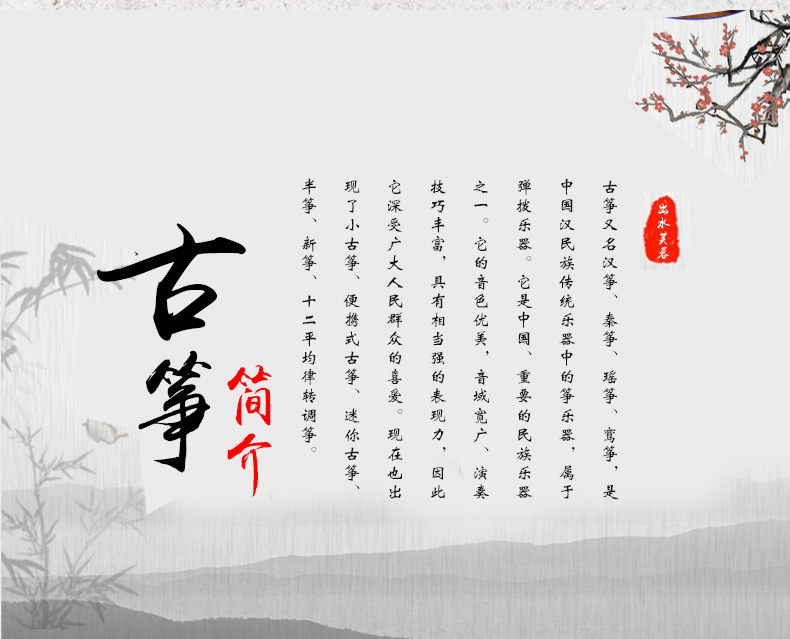 出水芙蓉
古筝又名汉筝、秦筝、瑶筝、鸾筝，是
中国汉民族传统乐器中的筝乐器，属于
弹拨乐器。它是中国、重要的民族乐器
之一。它的音色优美，音域宽广、演奏
技巧丰富，具有相当强的表现力，因此
它深受广大人民群众的喜爱。现在也出
现了小古筝、便携式古筝、迷你古筝、
半筝、新筝、十二平均律转调筝。
简介
古筝